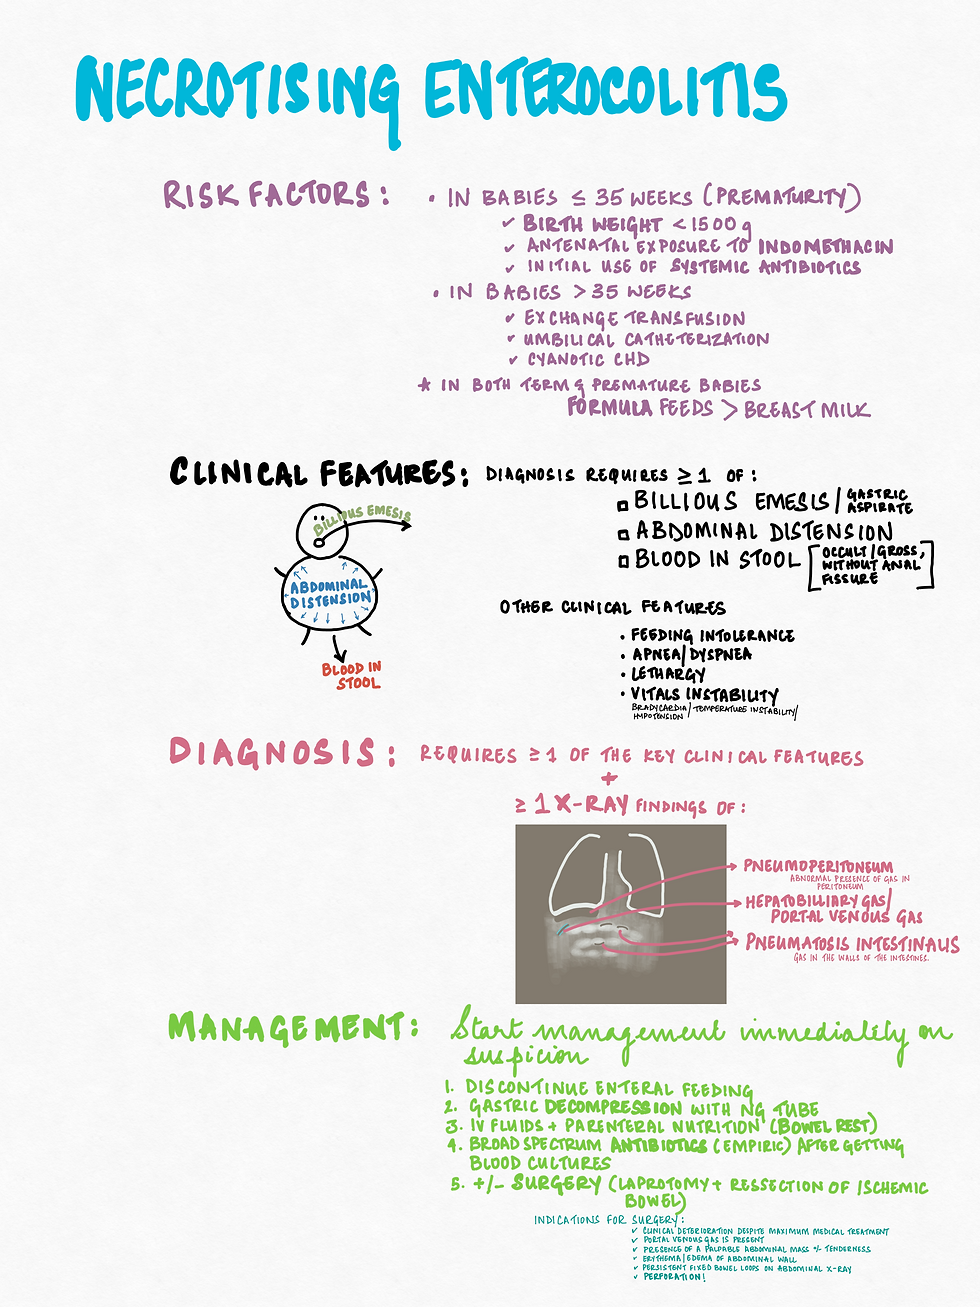 NECROTISING ENTEROCOLITIS
RISK FACTORS:
• IN BABIES ≤ 35 WEEKS (PREMATURITY)
✓ BIRTH WEIGHT <1500g
✓ ANTENATAL EXPOSURE TO INDOMETHACIN
✓ INITIAL USE OF SYSTEMIC ANTIBIOTICS
• IN BABIES >35 WEEKS
✓ EXCHANGE TRANSFUSION
✓ UMBILICAL CATHETERIZATION
✓ CYANOTIC CHD
* IN BOTH TERM & PREMATURE BABIES
FORMULA FEEDS > BREAST MILK
CLINICAL FEATURES: DIAGNOSIS REQUIRES ≥1 OF:
BILLIOUS EMESIS/GASTRIC
ASPIRATE
ABDOMINAL DISTENSION
BLOOD IN STOOL [OCCULT/GROSS,
WITHOUT ANAL
FISSURE]
BILLIOUS EMESIS
ABDOMINAL
DISTENSION
BLOOD IN
STOOL
OTHER CLINICAL FEATURES
• FEEDING INTOLERANCE
• APNEA/DYSPNEA
• LETHARGY
• VITALS INSTABILITY
BRADYCARDIA/TEMPERATURE INSTABILITY/
HYPOTENSION
DIAGNOSIS: REQUIRES ≥1 OF THE KEY CLINICAL FEATURES
+
≥1 X-RAY FINDINGS OF:
PNEUMOPERITONEUM
ABNORMAL PRESENCE OF GAS IN
PERITONEUM
HEPATOBILLIARY GAS/
PORTAL VENOUS GAS
PNEUMATOSIS INTESTINALIS
GAS IN THE WALLS OF THE INTESTINES.
MANAGEMENT: Start management immediately on
suspicion
1. DISCONTINUE ENTERAL FEEDING
2. GASTRIC DECOMPRESSION WITH NG TUBE
3. IV FLUIDS + PARENTERAL NUTRITION (BOWEL REST)
4. BROAD SPECTRUM ANTIBIOTICS (EMPIRIC) AFTER GETTING
BLOOD CULTURES
5. +/- SURGERY (LAPROTOMY + RESSECTION OF ISCHEMIC
BOWEL)
INDICATIONS FOR SURGERY:
✓ CLINICAL DETERIORATION DESPITE MAXIMUM MEDICAL TREATMENT
✓ PORTAL VENOUS GAS IS PRESENT
✓ PRESENCE OF A PALPABLE ABDOMINAL MASS +/- TENDERNESS
✓ ERYTHEMA/EDEMA OF ABDOMINAL WALL
✓ PERSISTENT FIXED BOWEL LOOPS ON ABDOMINAL X-RAY
✓ PERFORATION!